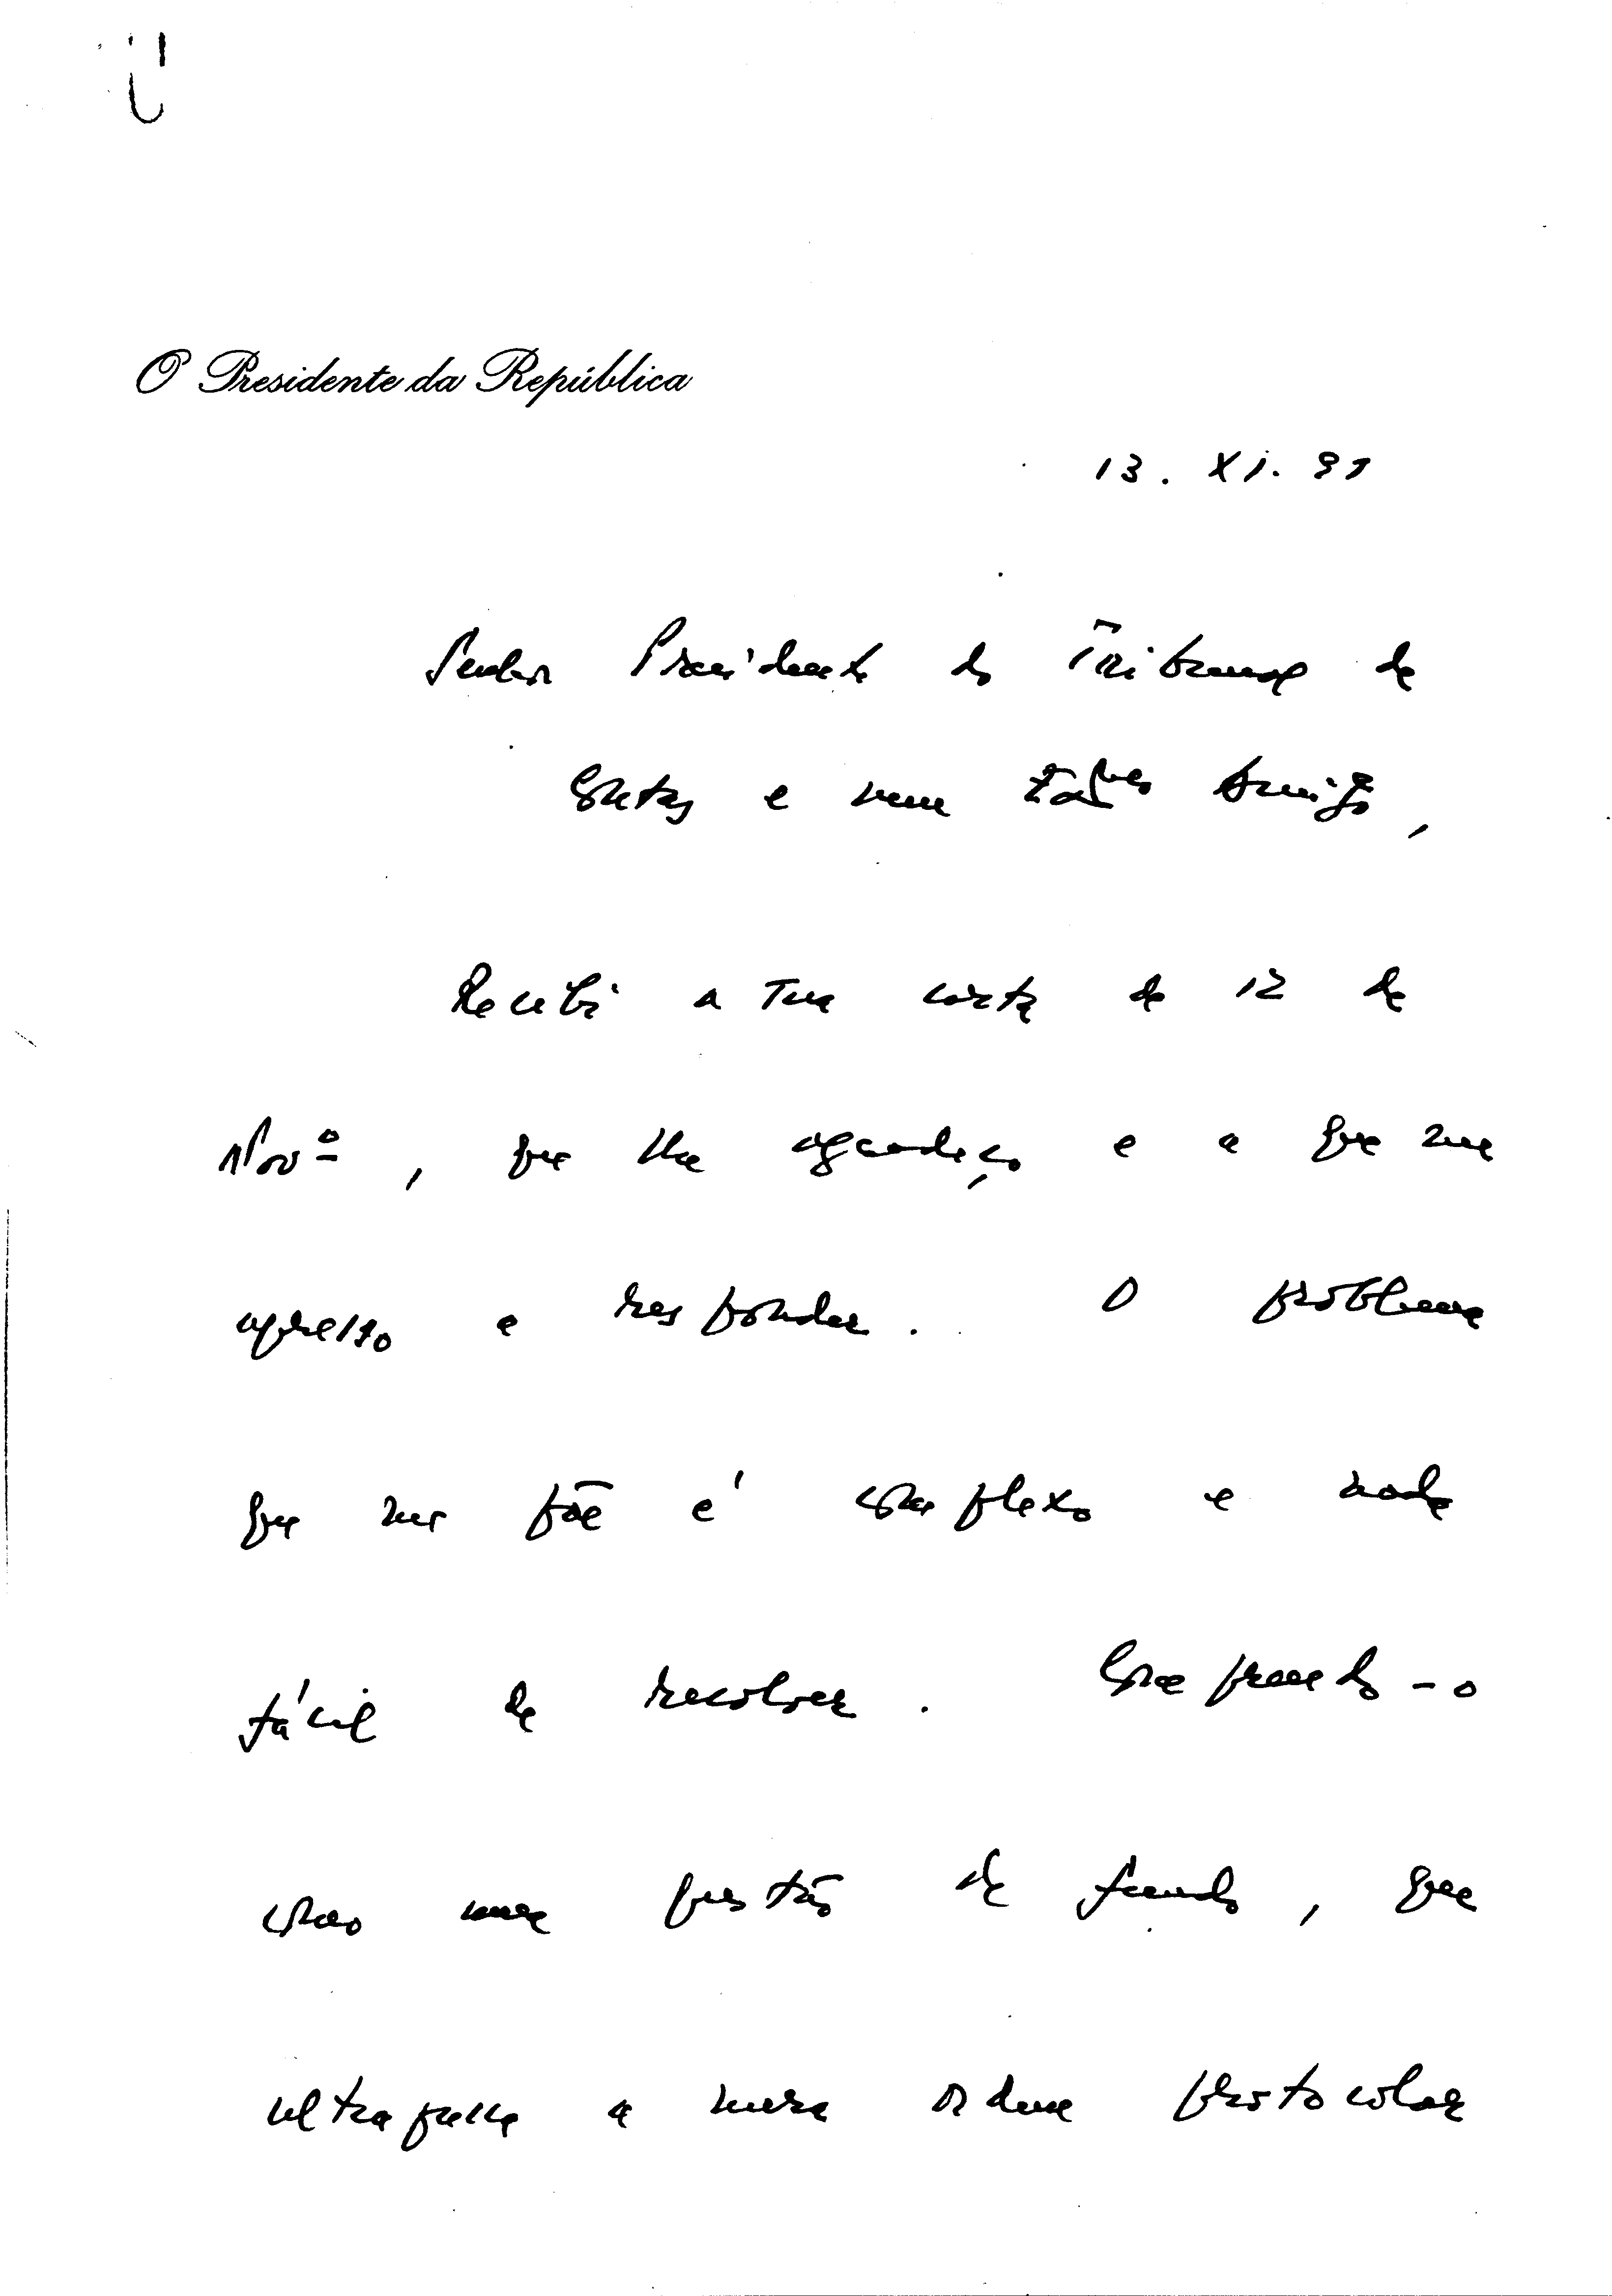 O Presidente da República
13. XI. 91
Senhor Presidente do Tribunal de
Contas e meu Amigo,
Recebi a sua carta de 12 de
Novº, que lhe agradeço e a que me
apresso a responder. O problema
que me põe é complexo e nada
fácil de resolver. Compreendo-o
como uma questão de fundo, que
ultrapassa a mera ordem protocolar